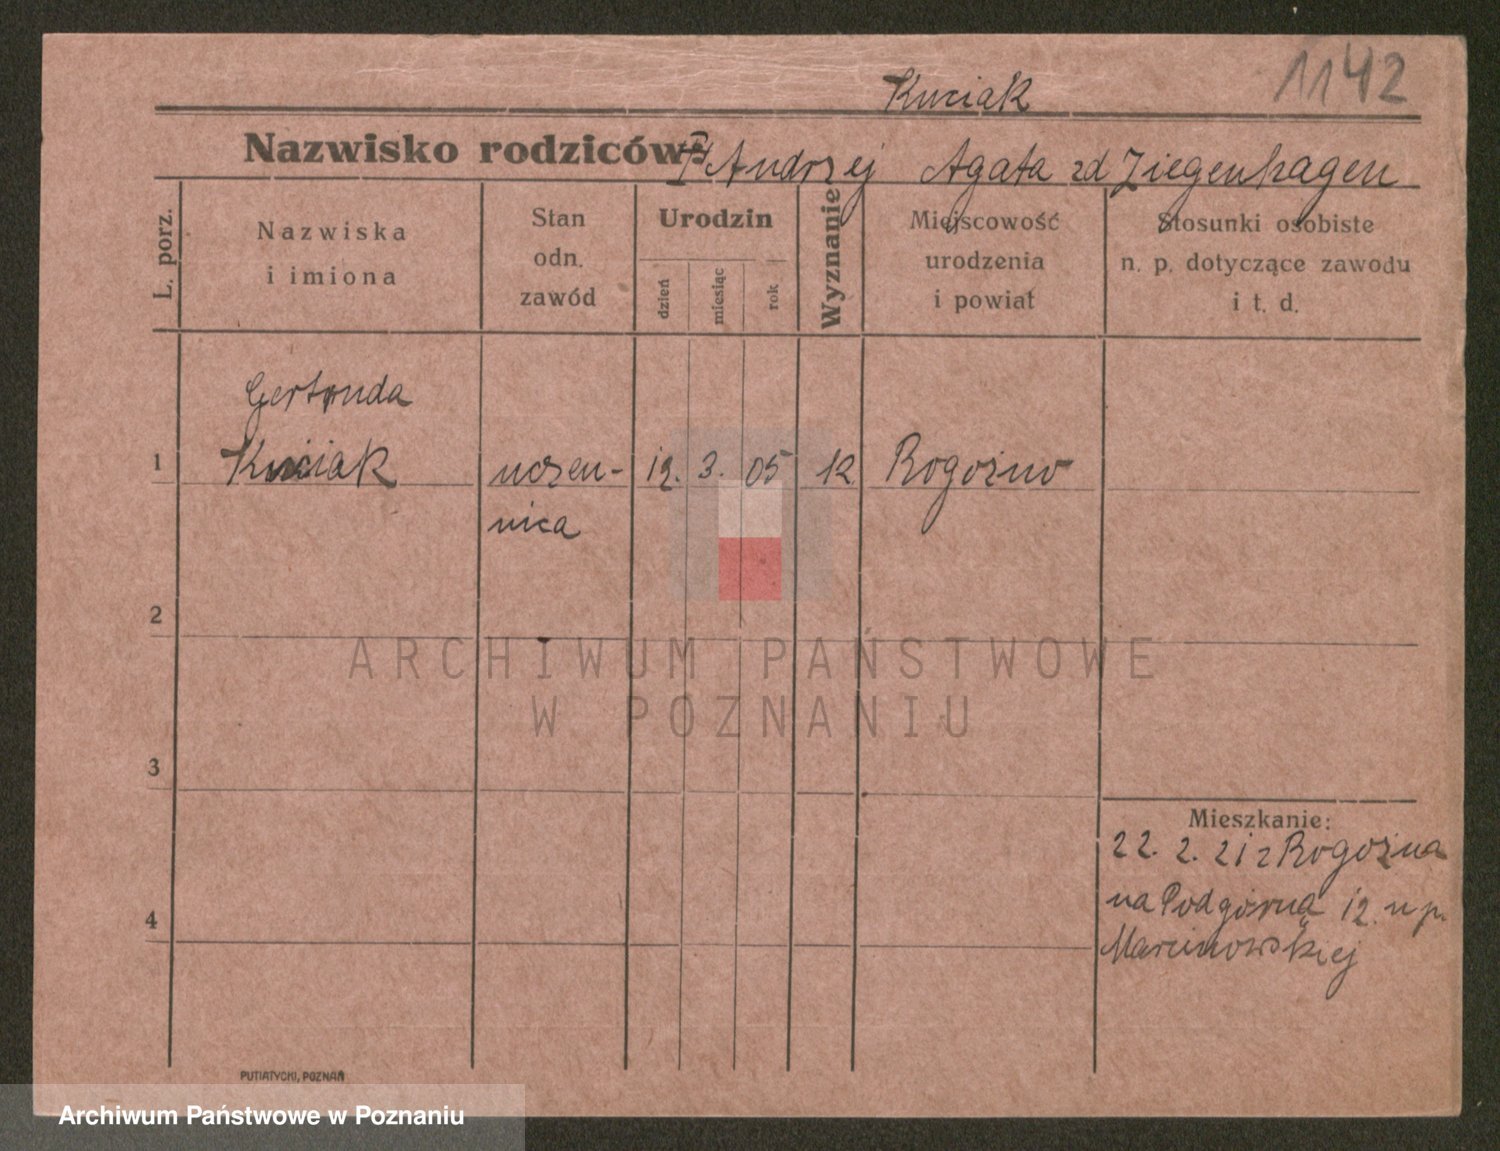 1142
Kuciak
Nazwisko rodziców: Andrzej Agata zd Ziegenhagen
L. porz.
Nazwiska
i imiona
Stan
odn.
zawód
Urodzin
dzień
miesiąc
rok
Wyznanie
Miejscowość
urodzenia
i powiat
Stosunki osobiste
n. p. dotyczące zawodu
i t. d.
Gertruda
1 Kuciak uczen- 12. 3. 05 Rogoźno
nica
2
ARCHIWUM PAŃSTWOWE
W POZNANIU
3
Mieszkanie:
22. 2. 21 z Rogoźna
4 na Podgórną 12. u p.
Marcinowskiej
PUTIATYCKI, POZNAŃ
Archiwum Państwowe w Poznaniu